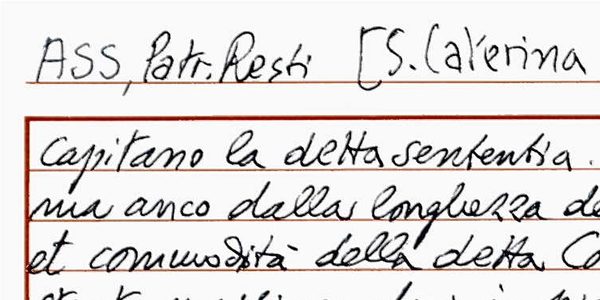 ASS, Patr. Resti [S. Caterina
Capitano la detta sententia.
ma anco dalla longhezza de
et commodità della detta Co